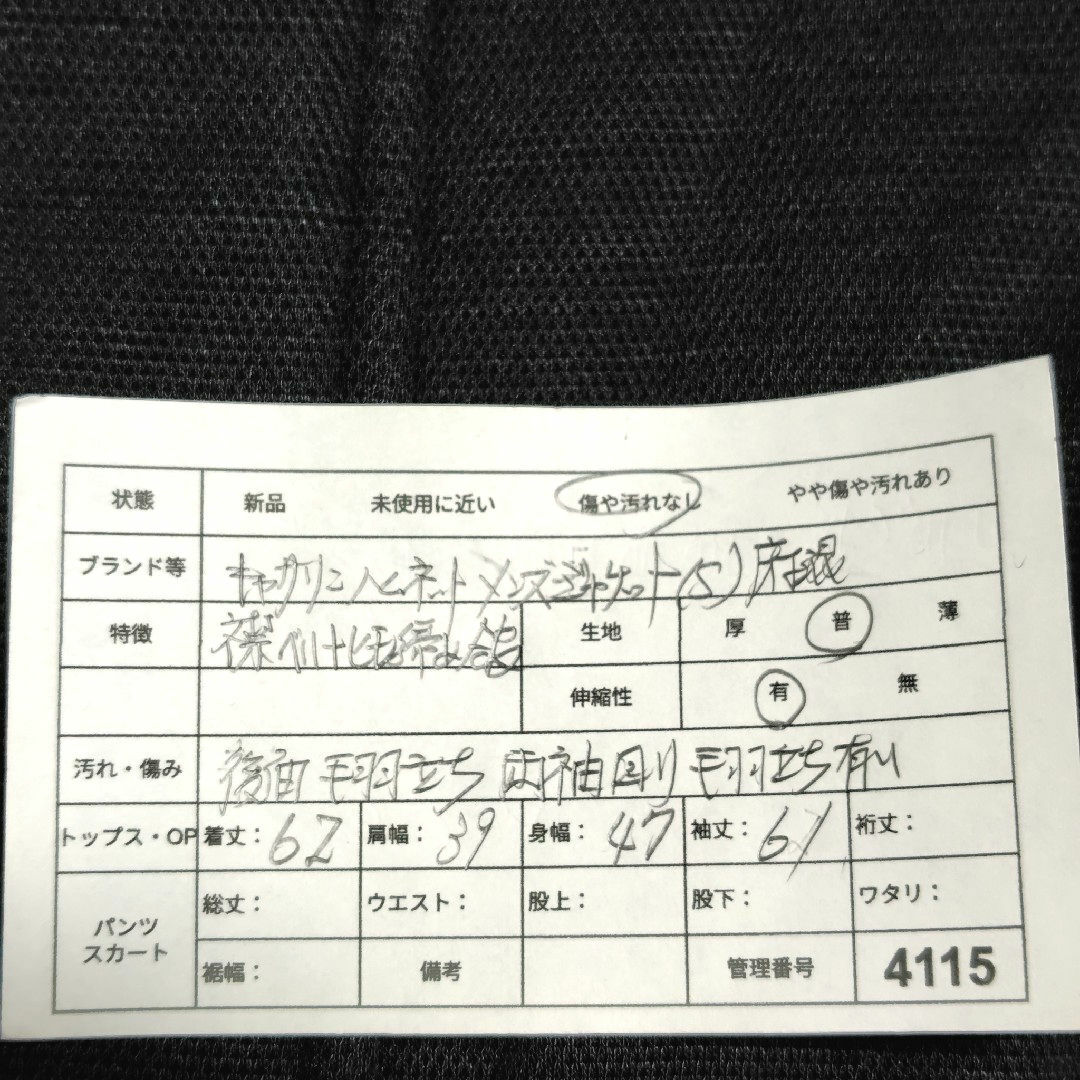 状態 新品 未使用に近い 傷や汚れなし やや傷や汚れあり
ブランド等 メンズジャケット(S)
特徴 生地 厚 普 薄
伸縮性 有 無
汚れ・傷み 後面 毛羽立ち 両袖 毛羽立ち有り
トップス・OP 着丈: 62 肩幅: 39 身幅: 47 袖丈: 61 裄丈:
パンツ スカート 総丈: ウエスト: 股上: 股下: ワタリ:
裾幅: 備考 管理番号 4115